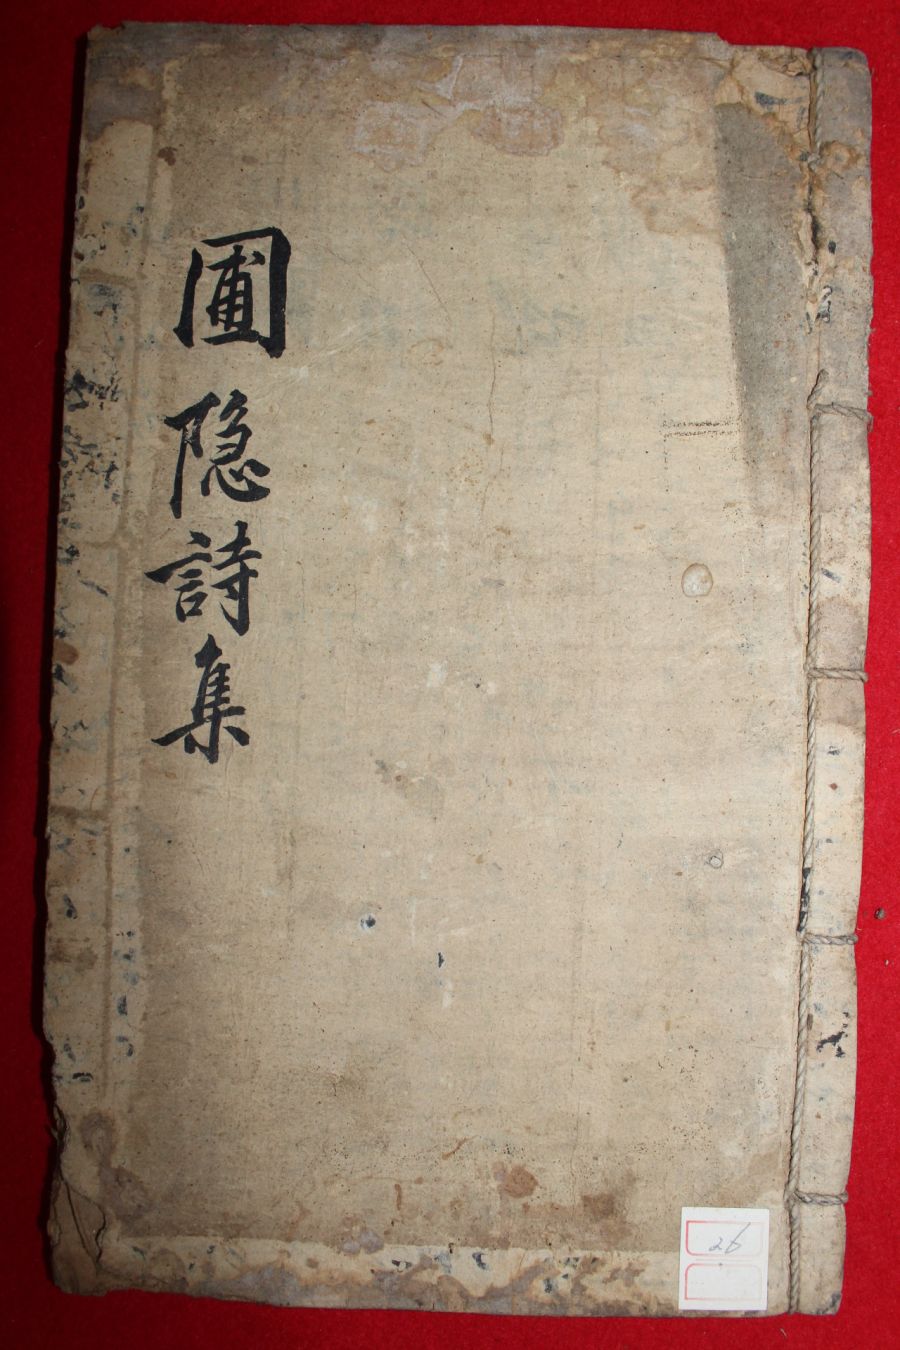 圃隐詩集
26